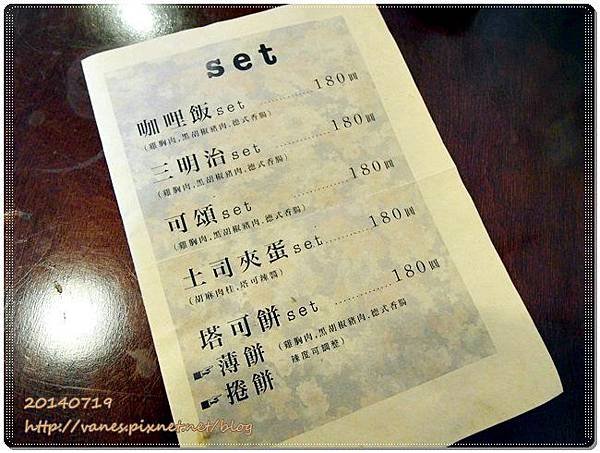 set
咖哩飯set ............ 180圓
(雞胸肉,黑胡椒豬肉.德式香腸)
三明治set ............ 180圓
(雞胸肉,黑胡椒豬肉.德式香腸)
可頌set ............ 180圓
(雞胸肉.黑胡椒豬肉.德式香腸)
土司夾蛋set ............ 180圓
(胡麻肉桂.塔可辣醬)
塔可餅set ............ 180圓
(雞胸肉,黑胡椒豬肉.德式香腸
辣度可調整)
☞薄餅
☞捲餅
20140719
http://vanes.pixnet.net/blog